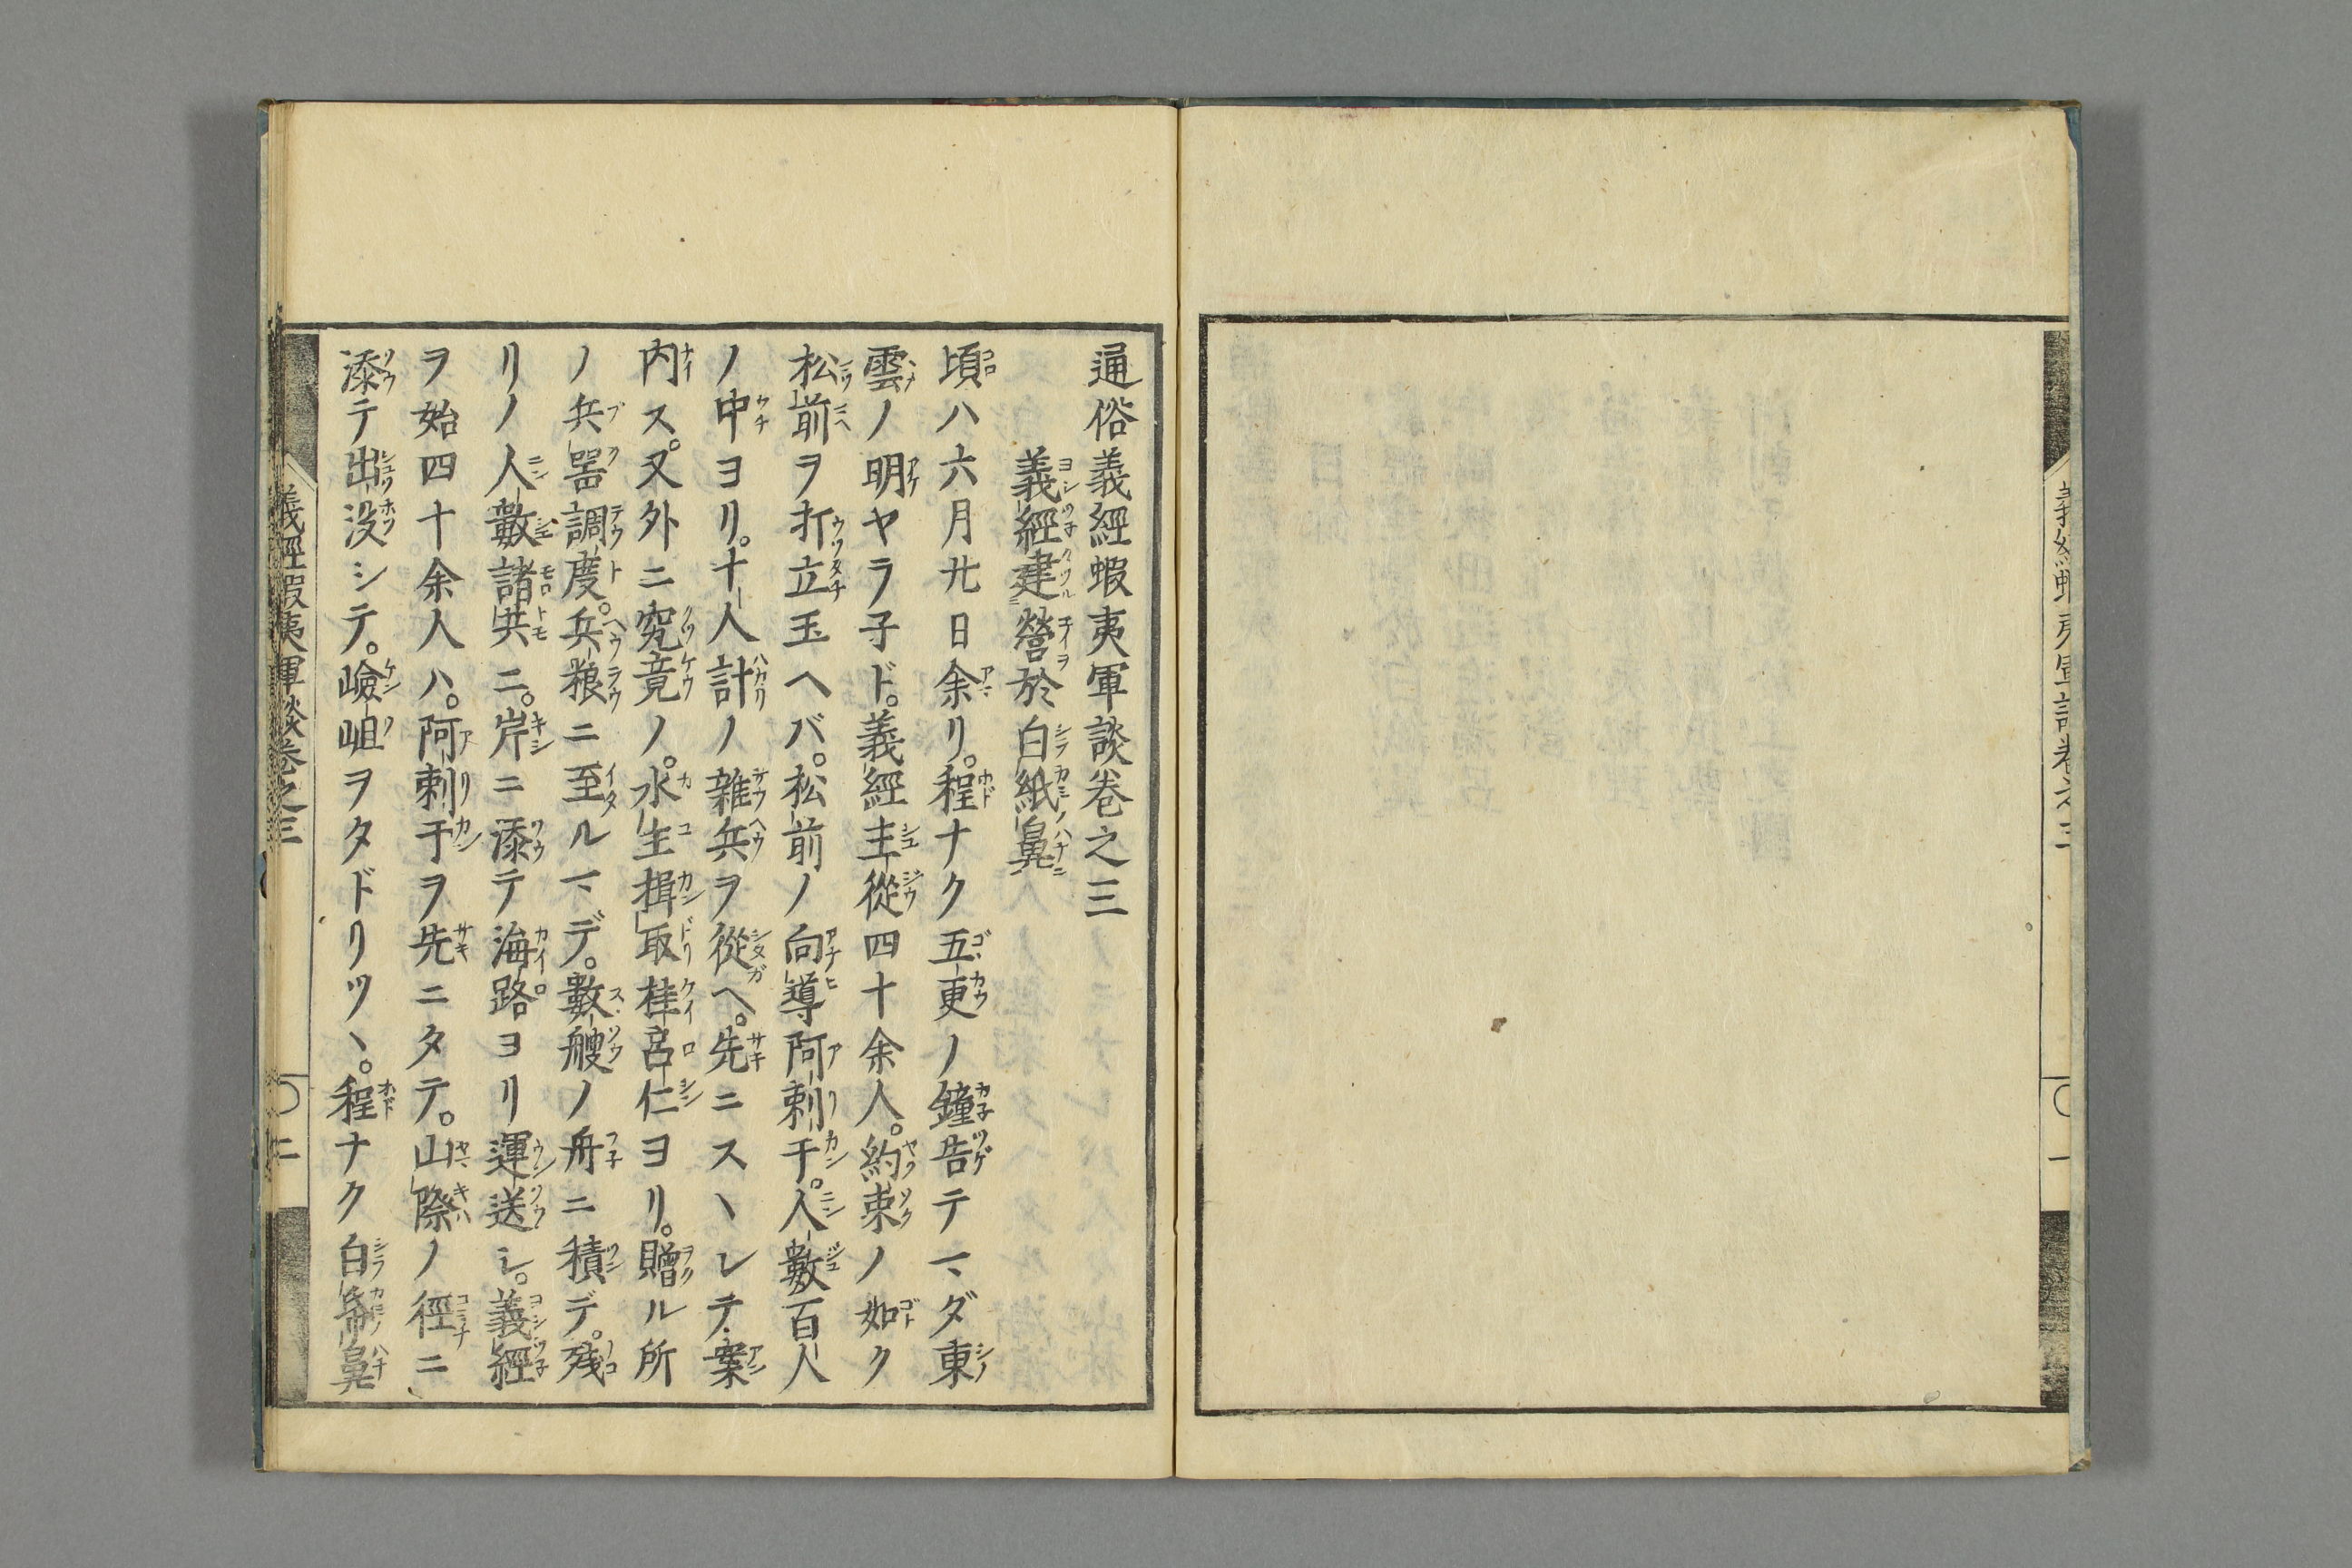 通俗義經蝦夷軍談卷之三
義經建營於白紙鼻
頃ハ六月廿日余リ。程ナク五更ノ鐘告テマダ東
雲ノ明ヤラ子ド。義經主從四十余人。約束ノ如ク
松前ヲ打立玉ヘバ。松前ノ向導阿剌干。人數百人
ノ中ヨリ。十人計ノ雑兵ヲ從ヘ。先ニスヽレテ案
内ス。又外ニ究竟ノ。水主揖取桂呂仁ヨリ。贈ル所
ノ兵噐調度。兵粮ニ至ルマデ。數艘ノ舟ニ積デ。残
リノ人數諸共ニ。岸ニ添テ海路ヨリ運送シ。義經
ヲ始四十余人ハ。阿剌干ヲ先ニタテ。山際ノ徑ニ
添テ出没シテ。嶮岨ヲタドリツヽ。程ナク白帋鼻
義經蝦夷軍談卷之三
〇二